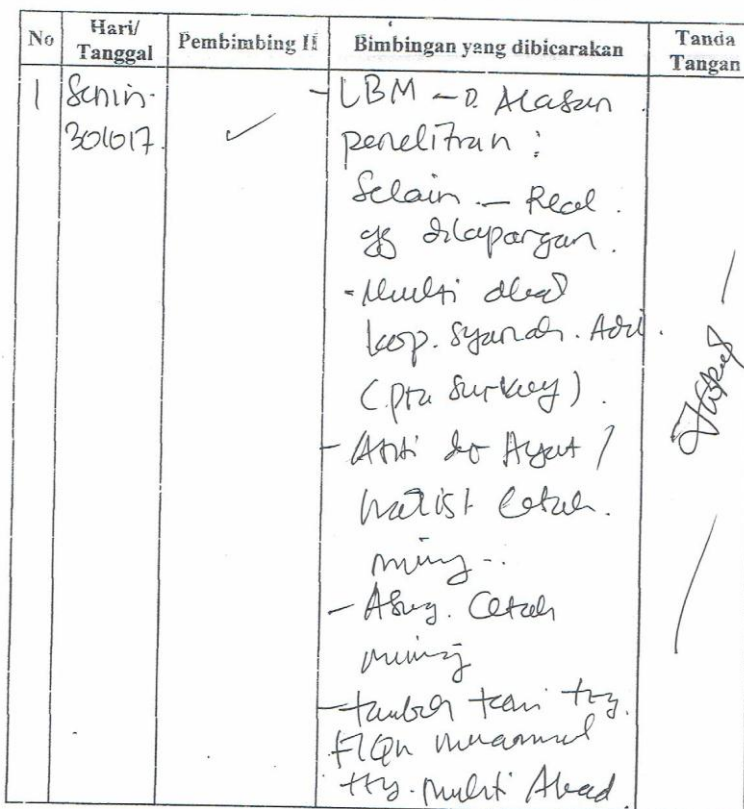 No
Hari/
Tanggal
Pembimbing II
Bimbingan yang dibicarakan
Tanda
Tangan
1
Senin
301017
- LBM - Alasan
penelitian :
Selain - Real
yg dilapangan.
- Multi akad
kop. syariah.
(pra survey).
- Arti Ayat /
cetak
miring
- Asing. Cetak
miring
- tambah teori ttg.
FIQh muamal
ttg. Multi Akad